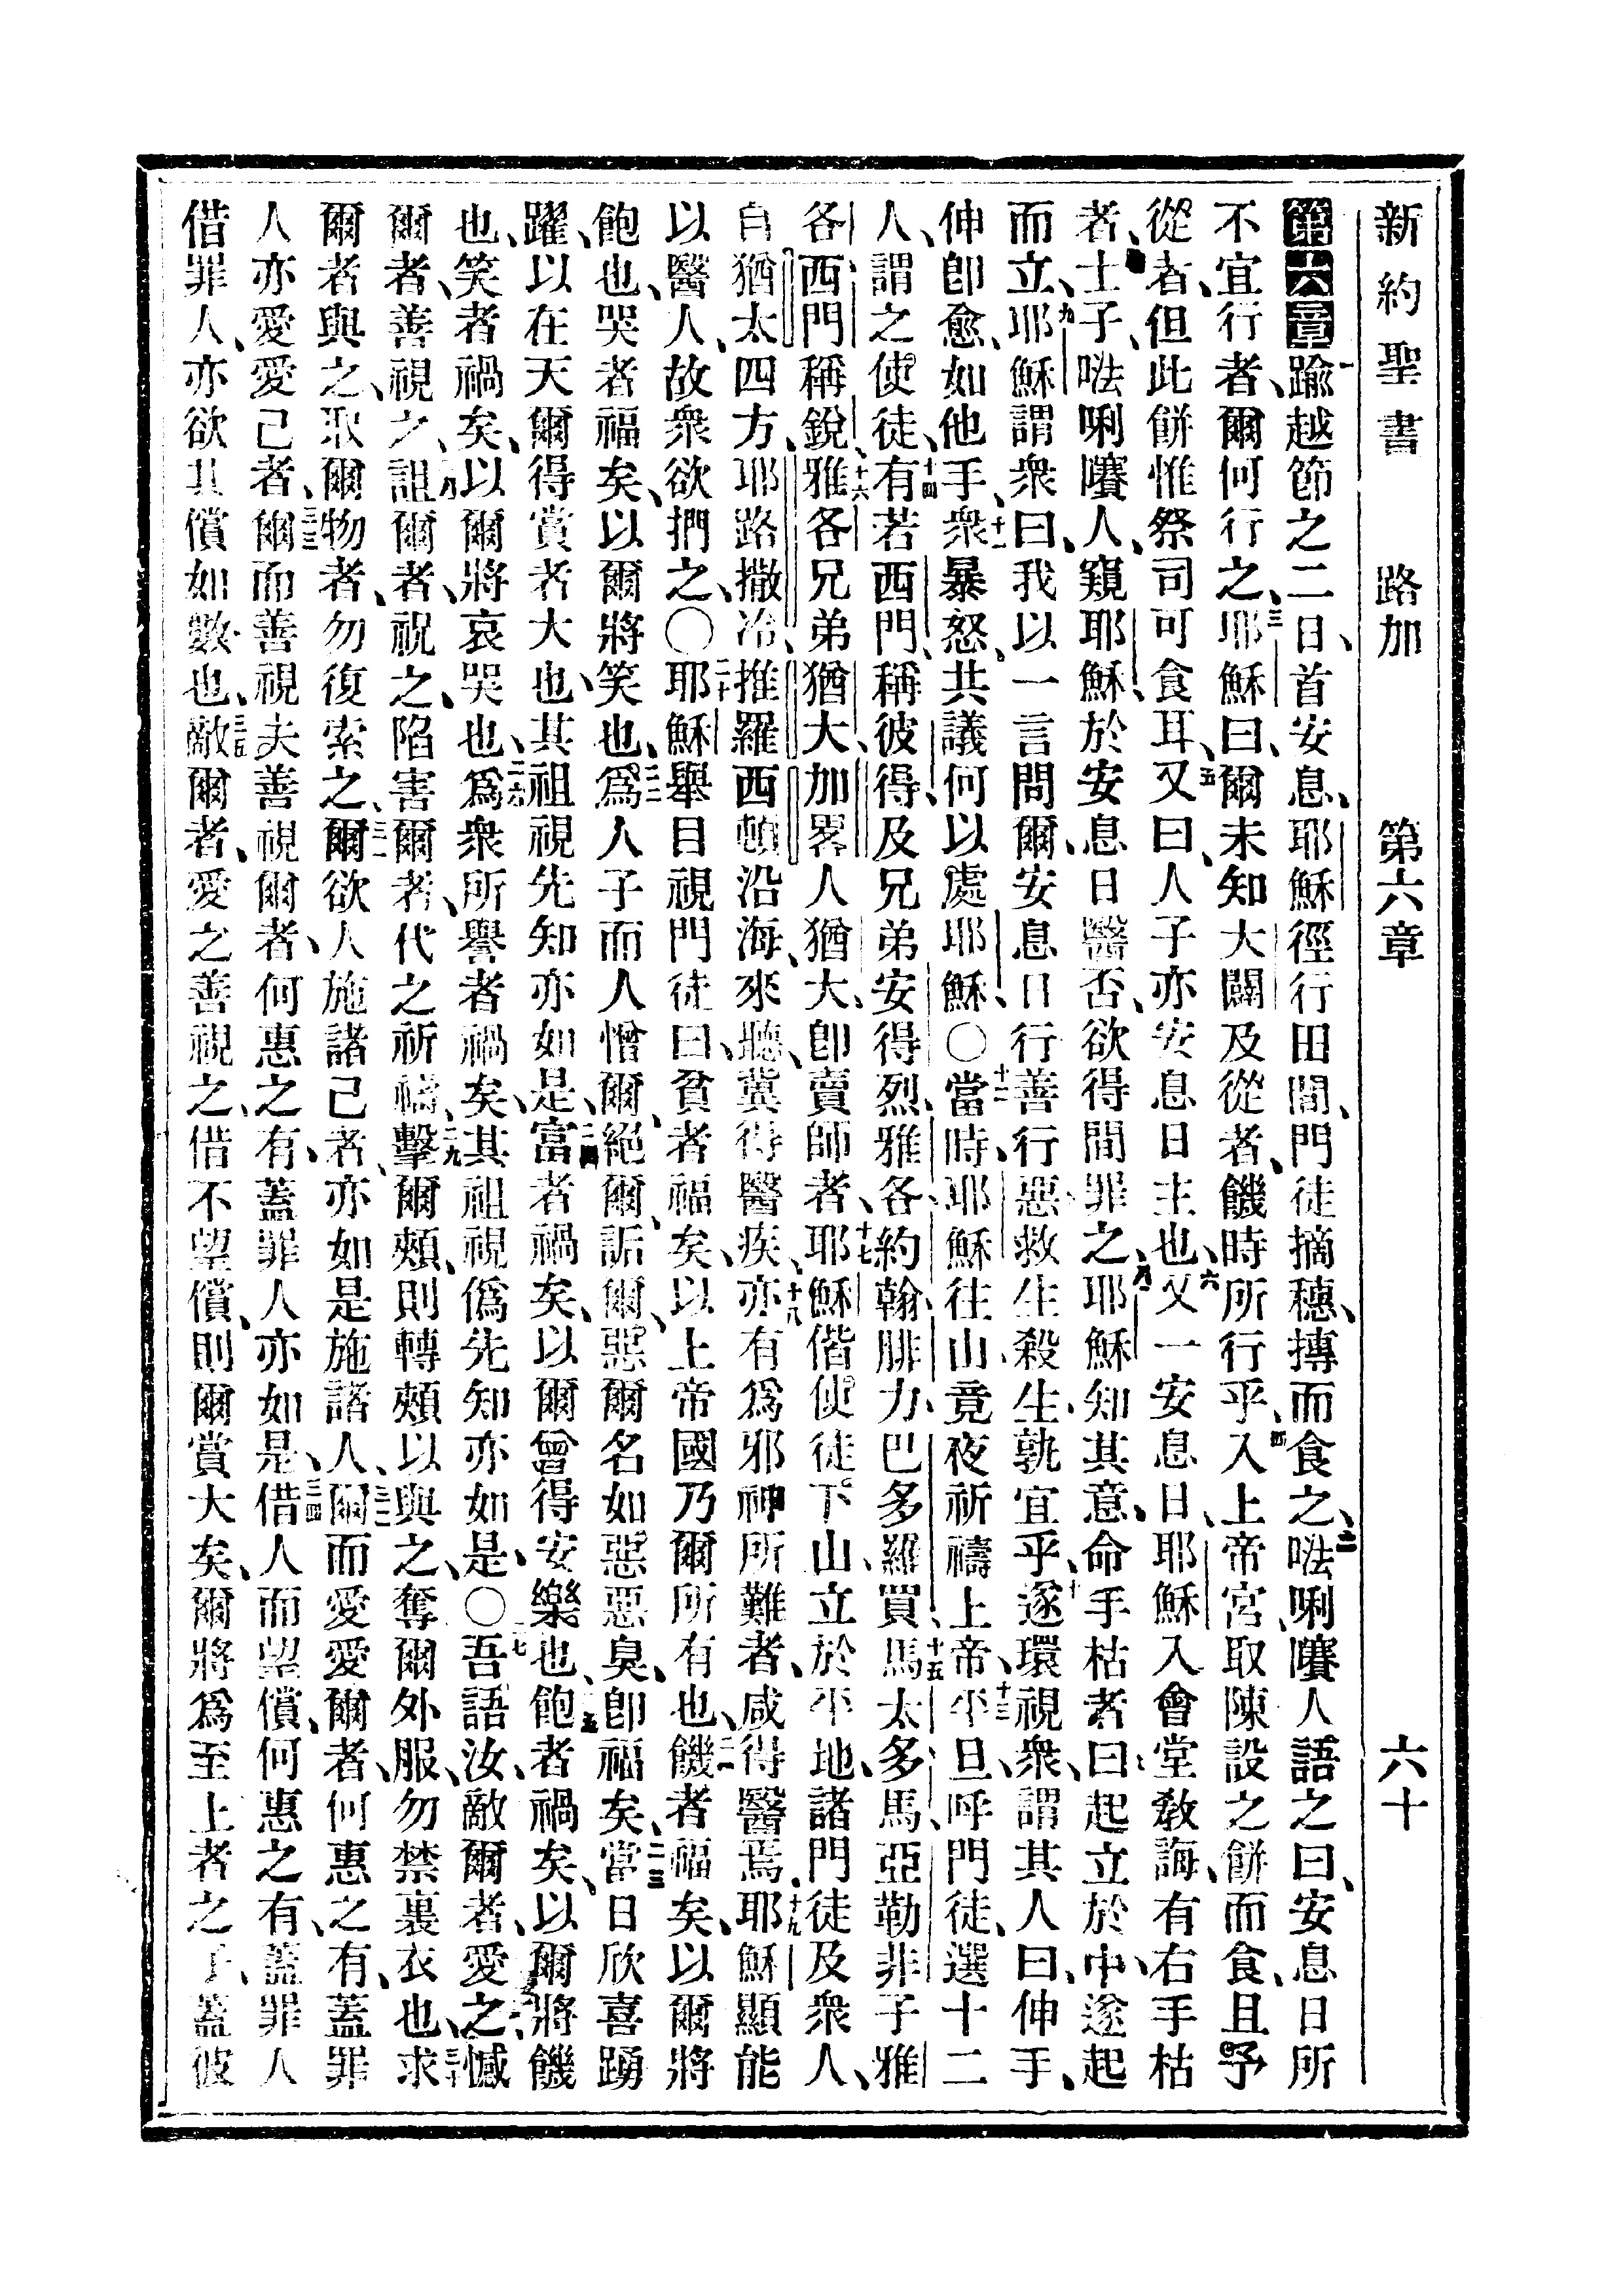 新約聖書 路加 第六章 六十
第六章 一踰越節之二日、首安息、耶穌徑行田間、門徒摘穗、摶而食之、二𠵽唎㘔人語之曰、安息日所
不宜行者、爾何行之、三耶穌曰、爾未知大闢及從者、饑時所行乎、四入上帝宮、取陳設之餅而食、且予
從者、但此餅惟祭司可食耳、五又曰、人子亦安息日主也、六又一安息日、耶穌入會堂教誨、有右手枯
者、士子、𠵽唎㘔人、窺耶穌、於安息日醫否、欲得間罪之、八耶穌知其意、命手枯者曰、起立於中、遂起
而立、九耶穌謂衆曰、我以一言問爾、安息日行善行惡、救生殺生、孰宜乎、十遂環視衆、謂其人曰、伸手、
伸卽愈、如他手、十一衆暴怒、共議何以處耶穌、〇十二當時耶穌往山、竟夜祈禱上帝、十三平旦、呼門徒、選十二
人、謂之使徒、十四有若西門、稱彼得、及兄弟安得烈、雅各、約翰、腓力、巴多羅買、十五馬太、多馬、亞勒非子雅
各、西門稱銳、十六雅各兄弟猶大、加畧人猶大、卽賣師者、十七耶穌偕使徒下山、立於平地、諸門徒及衆人、
自猶太四方、耶路撒冷、推羅西頓沿海、來聽、冀得醫疾、十八亦有爲邪神所難者、咸得醫焉、十九耶穌顯能
以醫人、故衆欲捫之、〇二十耶穌舉目視門徒曰、貧者福矣、以上帝國乃爾所有也、二一饑者福矣、以爾將
飽也、哭者福矣、以爾將笑也、二二爲人子而人憎爾、絕爾、詬爾、惡爾名如惡惡臭、卽福矣、二三當日欣喜踴
躍、以在天爾得賞者大也、其祖視先知亦如是、二四富者禍矣、以爾曾得安樂也、二五飽者禍矣、以爾將饑
也、笑者禍矣、以爾將哀哭也、二六爲衆所譽者禍矣、其祖視僞先知亦如是、〇二七吾語汝、敵爾者、愛之、憾
爾者、善視之、詛爾者、祝之、陷害爾者、代之祈禱、二九擊爾頰、則轉頰以與之、奪爾外服、勿禁裏衣也、三十求
爾者與之、取爾物者、勿復索之、三一爾欲人施諸己者、亦如是施諸人、三二爾而愛愛爾者、何惠之有、蓋罪
人亦愛愛己者、三三爾而善視夫善視爾者、何惠之有、蓋罪人亦如是、三四借人而望償、何惠之有、蓋罪人
借罪人、亦欲其償如數也、三五敵爾者、愛之善視之、借不望償、則爾賞大矣、爾將爲至上者之子、蓋彼